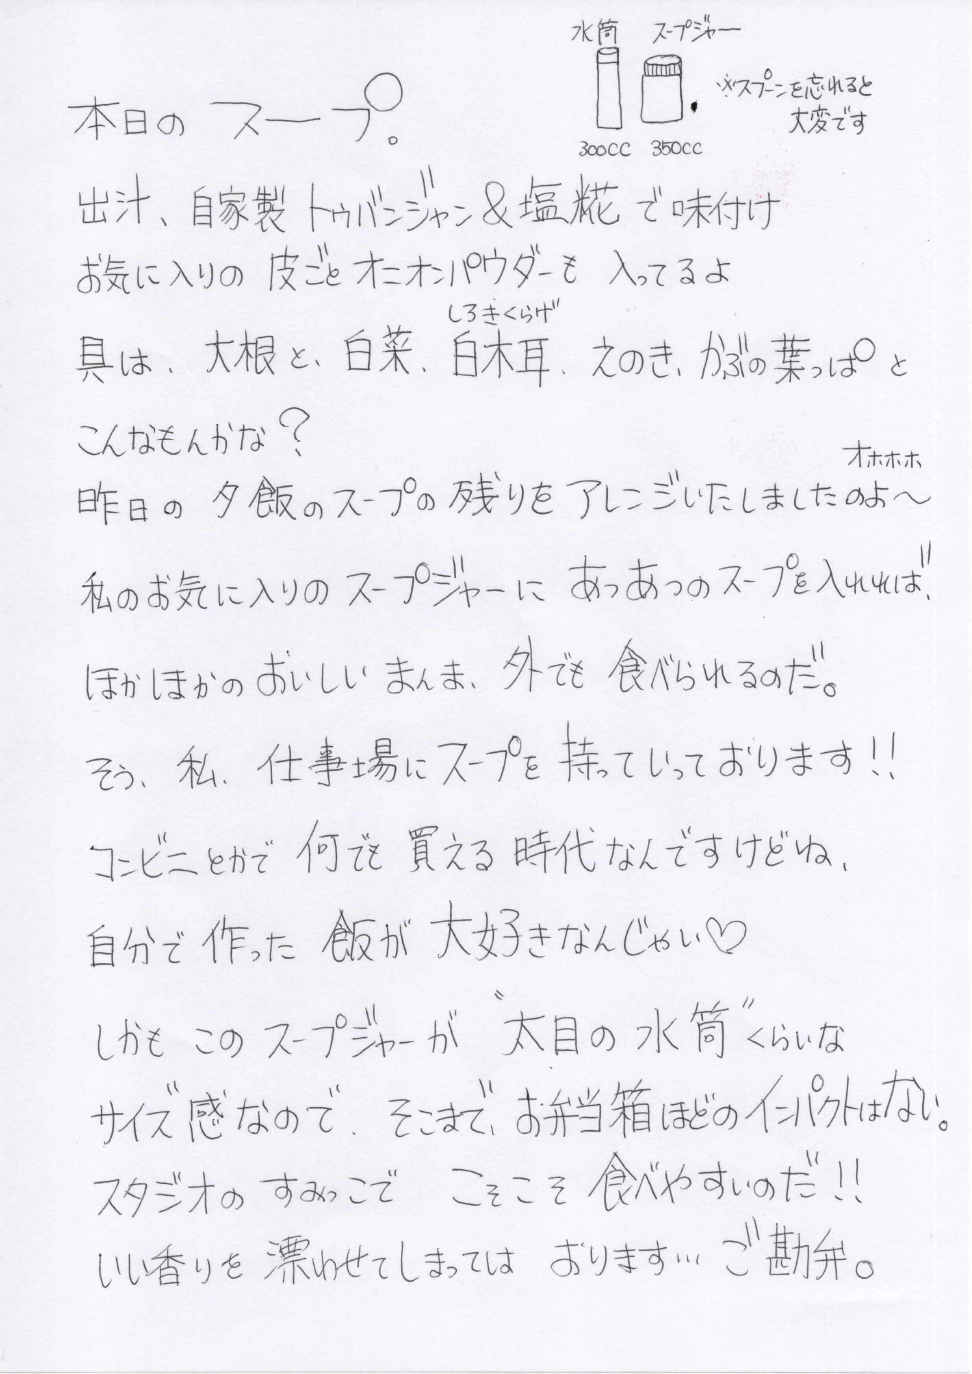 水筒 スープジャー
※スプーンを忘れると
大変です
300CC 350CC
本日の スープ。
出汁、自家製 トウバンジャン&塩糀 で味付け
お気に入りの 皮ごと オニオンパウダーも 入ってるよ
しろきくらげ
具は、大根と、白菜、白木耳、えのき、かぶの葉っぱ と
こんなもんかな?
オホホホ
昨日の 夕飯のスープの 残りを アレンジいたしましたのよ〜
私のお気に入りの スープジャーに あつあつのスープを入れれば、
ほかほかの おいしい まんま、外でも 食べられるのだ。
そう、私、仕事場にスープを 持っていっております!!
コンビニとかで 何でも 買える 時代なんですけどね、
自分で 作った 飯が 大好きなんじゃい♡
しかも この スープジャーが “太目の 水筒”くらいな
サイズ感なので、そこまで、お弁当箱ほどのインパクトはない。
スタジオの すみっこで こそこそ 食べやすいのだ!!
いい香りを 漂わせてしまっては おります… ご勘弁。